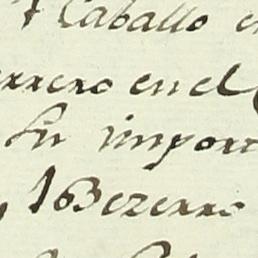 1 Caballo e
errero en el
Su impor
1 Bezerro